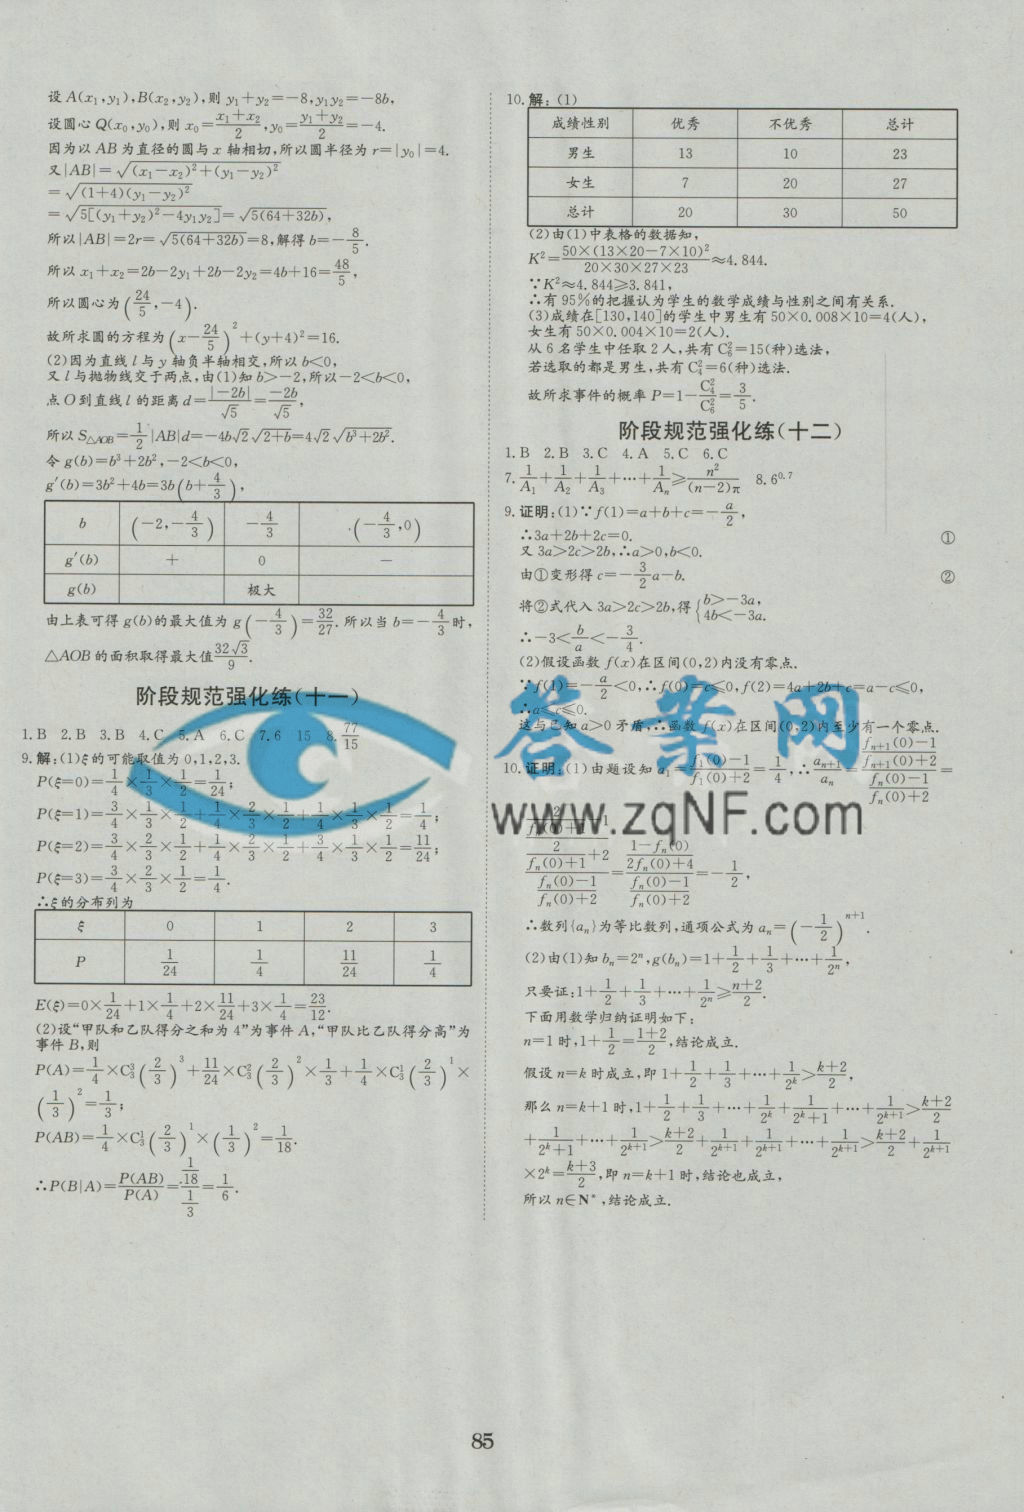 设 A(x₁,y₁),B(x₂,y₂),则 y₁+y₂=-8,y₁y₂=-8b,
设圆心 Q(x₀,y₀),则 x₀=(x₁+x₂)/2,y₀=(y₁+y₂)/2=-4.
因为以 AB 为直径的圆与 x 轴相切,所以圆半径为 r=|y₀|=4.
又|AB|=√((x₁-x₂)²+(y₁-y₂)²)
=√((1+4)(y₁-y₂)²)
=√(5[(y₁+y₂)²-4y₁y₂])=√(5(64+32b)),
所以|AB|=2r=√(5(64+32b))=8,解得 b=-8/5.
所以 x₁+x₂=2b-2y₁+2b-2y₂=4b+16=48/5,
所以圆心为(24/5,-4).
故所求圆的方程为(x-24/5)²+(y+4)²=16.
(2)因为直线 l 与 y 轴负半轴相交,所以 b<0,
又 l 与抛物线交于两点,由(1)知 b>-2,所以-2<b<0,
点 O 到直线 l 的距离 d=|-2b|/√5=-2b/√5,
所以 S△AOB=1/2|AB|d=-4b√2√(2+b)=4√2√(b³+2b²).
令 g(b)=b³+2b²,-2<b<0,
g′(b)=3b²+4b=3b(b+4/3),
b (-2,-4/3) -4/3 (-4/3,0)
g′(b) + 0 -
g(b) 极大
由上表可得 g(b)的最大值为 g(-4/3)=32/27.所以当 b=-4/3时,
△AOB 的面积取得最大值32√3/9.
阶段规范强化练(十一)
1.B 2.B 3.B 4.C 5.A 6.C 7.6 15 8.77/15
9.解:(1)ξ的可能取值为 0,1,2,3.
P(ξ=0)=1/4×1/3×1/2=1/24;
P(ξ=1)=3/4×1/3×1/2+1/4×2/3×1/2+1/4×1/3×1/2=1/4;
P(ξ=2)=3/4×2/3×1/2+1/4×2/3×1/2+3/4×1/3×1/2=11/24;
P(ξ=3)=3/4×2/3×1/2=1/4.
∴ξ的分布列为
ξ 0 1 2 3
P 1/24 1/4 11/24 1/4
E(ξ)=0×1/24+1×1/4+2×11/24+3×1/4=23/12.
(2)设“甲队和乙队得分之和为 4”为事件 A,“甲队比乙队得分高”为
事件 B,则
P(A)=1/4×C₃³(2/3)³+11/24×C₃²(2/3)²×1/3+1/4×C₃¹(2/3)¹×
(1/3)²=1/3;
P(AB)=1/4×C₃¹(2/3)¹×(1/3)²=1/18.
∴P(B|A)=P(AB)/P(A)=(1/18)/(1/3)=1/6.
10.解:(1)
成绩性别 优秀 不优秀 总计
男生 13 10 23
女生 7 20 27
总计 20 30 50
(2)由(1)中表格的数据知,
K²=50×(13×20-7×10)²/(20×30×27×23)≈4.844.
∵K²≈4.844⩾3.841,
∴有 95%的把握认为学生的数学成绩与性别之间有关系.
(3)成绩在[130,140]的学生中男生有 50×0.008×10=4(人),
女生有 50×0.004×10=2(人).
从 6 名学生中任取 2 人,共有 C₆²=15(种)选法,
若选取的都是男生,共有 C₄²=6(种)选法.
故所求事件的概率 P=1-C₄²/C₆²=3/5.
阶段规范强化练(十二)
1.B 2.B 3.C 4.A 5.C 6.C
7.1/A₁+1/A₂+1/A₃+…+1/Aₙ⩾n²/((n-2)π) 8.6^0.7
9.证明:(1)∵f(1)=a+b+c=-a/2,
∴3a+2b+2c=0. ①
又 3a>2c>2b,∴a>0,b<0.
由①变形得 c=-3/2a-b. ②
将②式代入 3a>2c>2b,得{b>-3a, 4b<-3a.
∴-3<b/a<-3/4.
(2)假设函数 f(x)在区间(0,2)内没有零点.
∵f(1)=-a/2<0,∴f(0)=c⩽0,f(2)=4a+2b+c=a-c⩽0,
∴a⩽c⩽0.
这与已知 a>0 矛盾,∴函数 f(x)在区间(0,2)内至少有一个零点.
10.证明:(1)由题设知 a₁=(f₁(0)-1)/(f₁(0)+2)=1/4,∴aₙ₊₁/aₙ=((fₙ₊₁(0)-1)/(fₙ₊₁(0)+2))/((fₙ(0)-1)/(fₙ(0)+2))=
((2/(fₙ(0)+1)-1)/(2/(fₙ(0)+1)+2))/((fₙ(0)-1)/(fₙ(0)+2))=((1-fₙ(0))/(2fₙ(0)+4))/((fₙ(0)-1)/(fₙ(0)+2))=-1/2,
∴数列{aₙ}为等比数列,通项公式为 aₙ=(-1/2)ⁿ⁺¹.
(2)由(1)知 bₙ=2ⁿ,g(bₙ)=1+1/2+1/3+…+1/2ⁿ,
只要证:1+1/2+1/3+…+1/2ⁿ⩾(n+2)/2.
下面用数学归纳证明如下:
n=1 时,1+1/2=(1+2)/2,结论成立.
假设 n=k 时成立,即 1+1/2+1/3+…+1/2ᵏ>(k+2)/2,
那么 n=k+1 时,1+1/2+1/3+…+1/2ᵏ+1/(2ᵏ+1)+…+1/2ᵏ⁺¹>(k+2)/2
+1/(2ᵏ+1)+…+1/2ᵏ⁺¹>(k+2)/2+1/2ᵏ⁺¹+1/2ᵏ⁺¹+…+1/2ᵏ⁺¹>(k+2)/2+1/2ᵏ⁺¹
×2ᵏ=(k+3)/2,即 n=k+1 时,结论也成立,
所以 n∈N*,结论成立.
答案网
www.zqNF.com
85